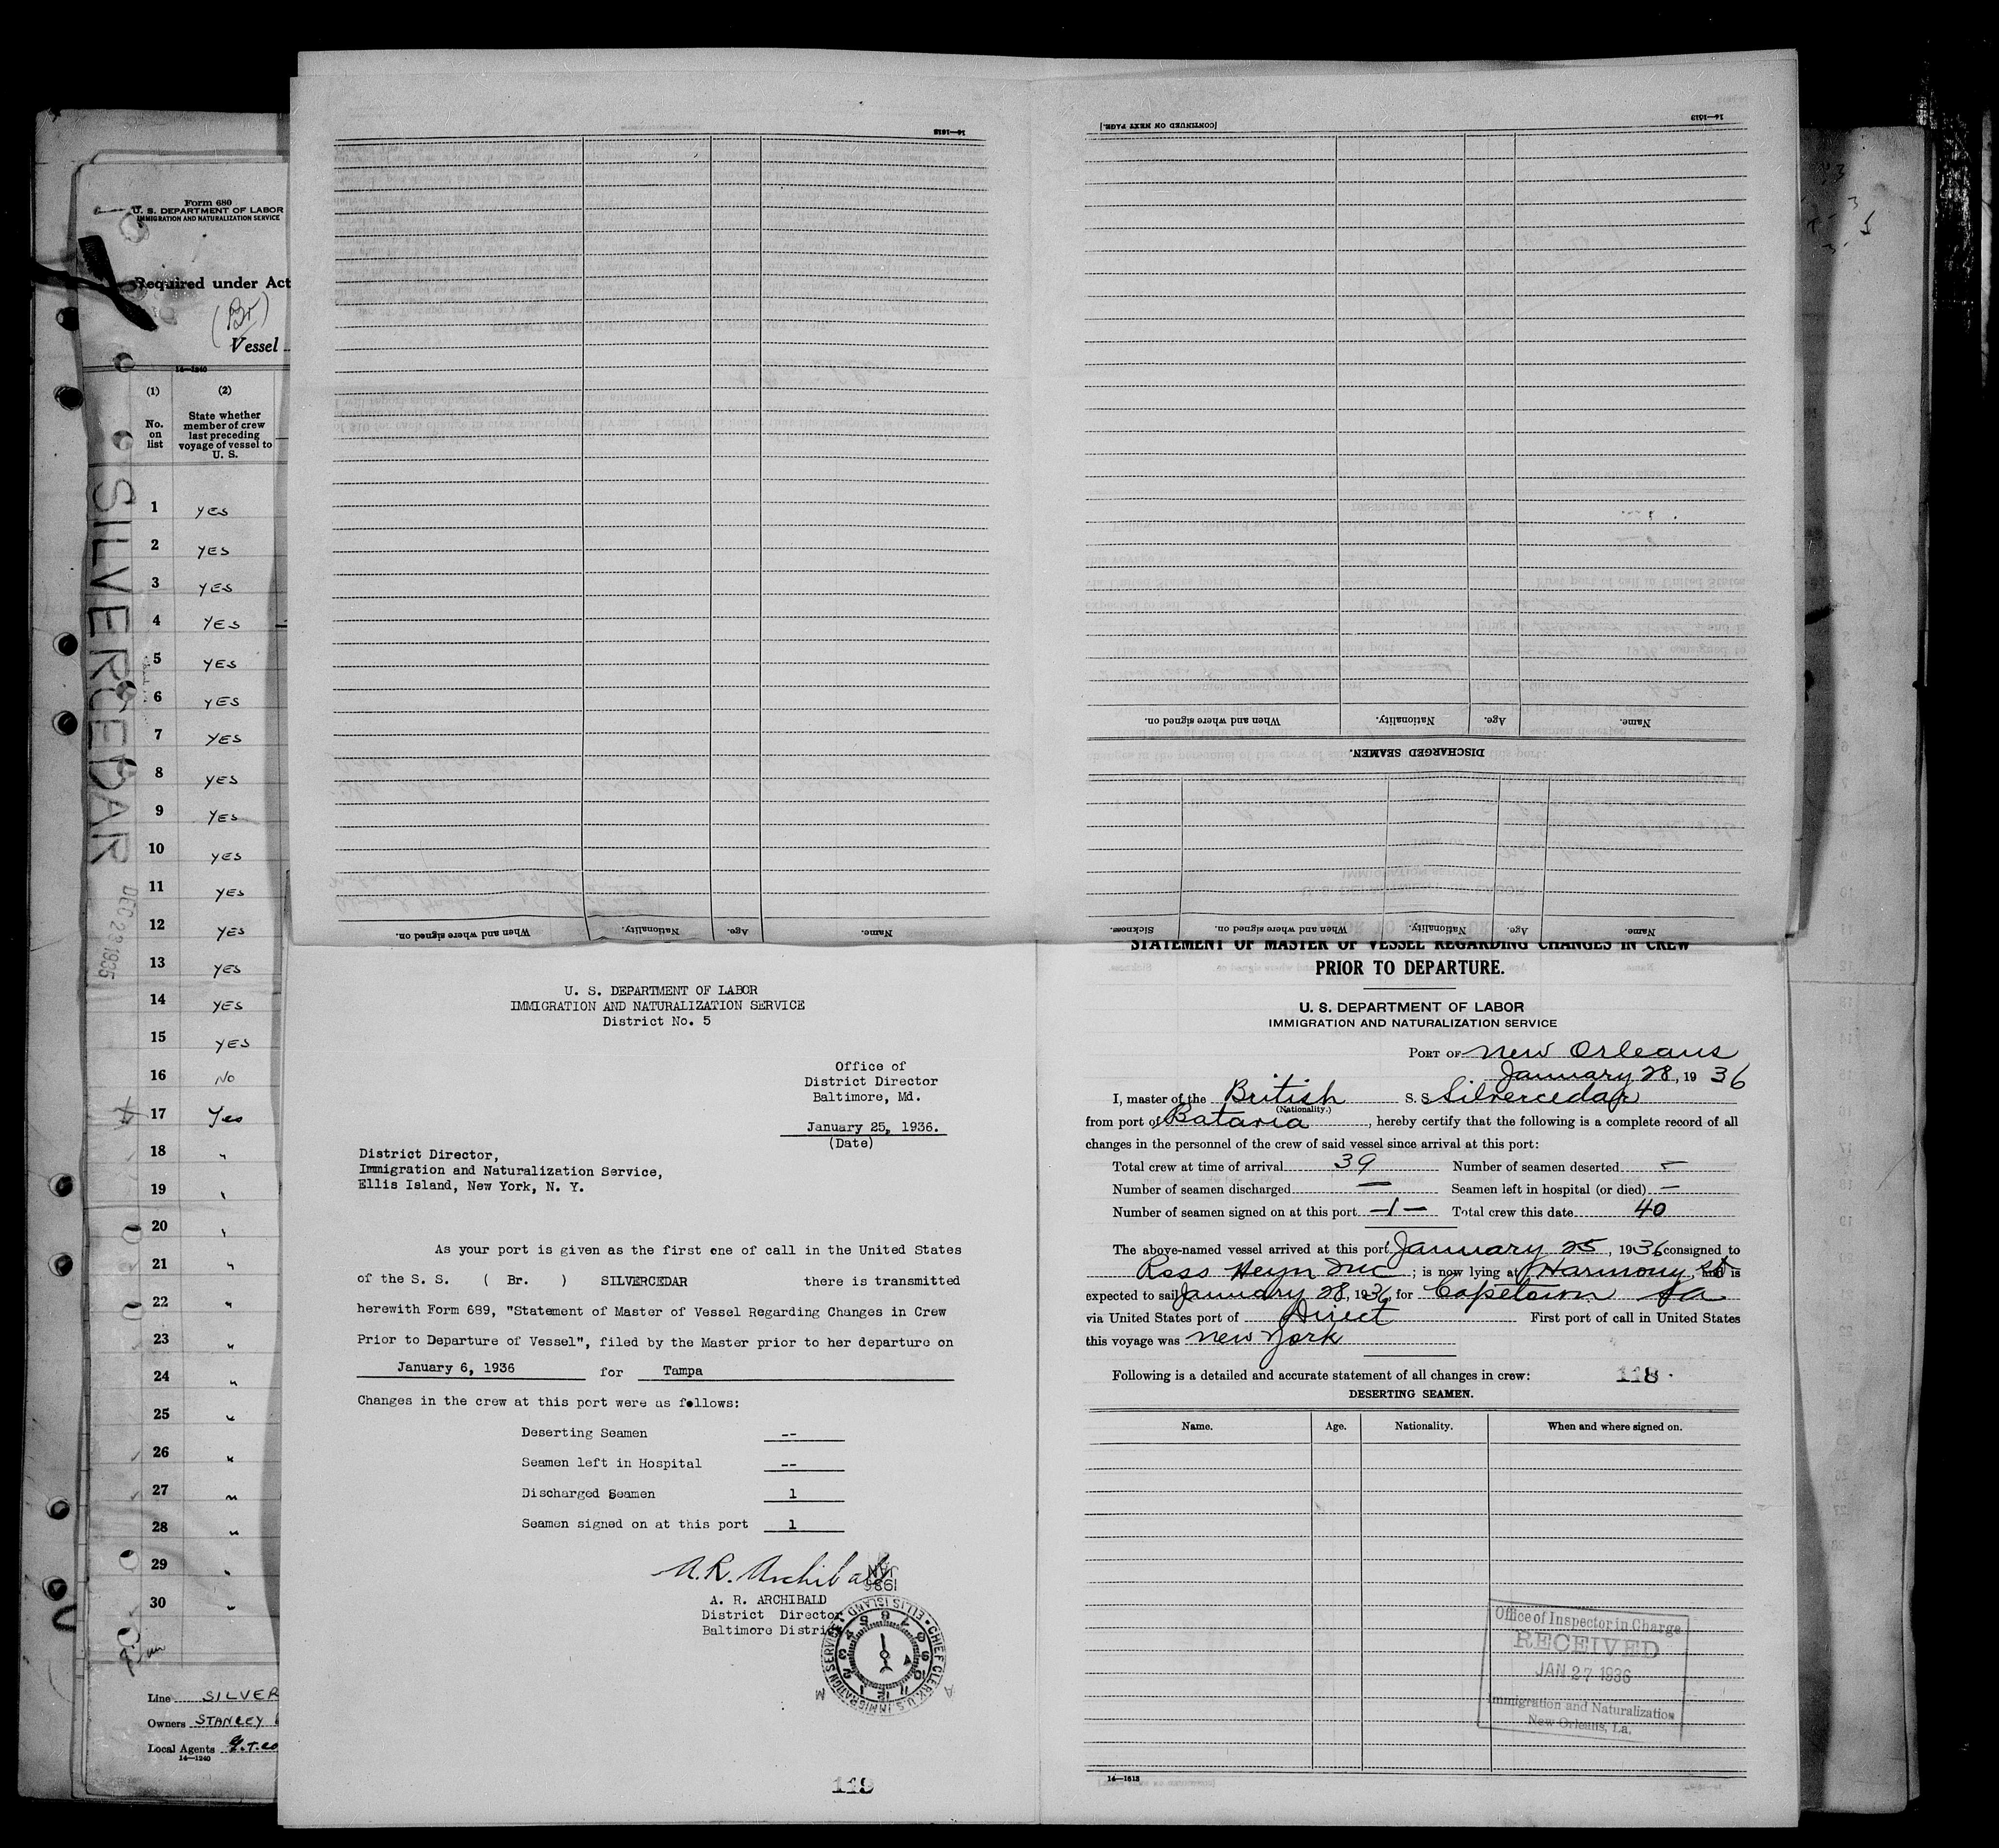 Form 680
U. S. DEPARTMENT OF LABOR
IMMIGRATION AND NATURALIZATION SERVICE
Required under Act
(Br)
Vessel
14—1240
(1) (2)
No. on list
State whether member of crew last preceding voyage of vessel to U. S.
1 YES
2 YES
3 YES
4 YES
5 YES
6 YES
7 YES
8 YES
9 YES
10 YES
11 YES
12 YES
13 YES
14 YES
15 YES
16 NO
17 Yes
18 "
19 "
20 "
21 "
22 "
23 "
24 "
25 "
26 "
27 "
28 "
29 "
30 "
Line SILVER
Owners STANLEY
Local Agents
14—1240
SILVERCEDAR
DEC 22 1935
16—1613
[CONTINUED ON NEXT PAGE.]
14—1613
When and where signed on. Nationality. Age. Name.
DISCHARGED SEAMEN.
Sickness. When and where signed on. Nationality. Age. Name.
When and where signed on. Nationality. Age. Name.
U. S. DEPARTMENT OF LABOR
IMMIGRATION AND NATURALIZATION SERVICE
District No. 5
Office of
District Director
Baltimore, Md.
January 25, 1936.
(Date)
District Director,
Immigration and Naturalization Service,
Ellis Island, New York, N. Y.
As your port is given as the first one of call in the United States
of the S. S. ( Br. ) SILVERCEDAR there is transmitted
herewith Form 689, "Statement of Master of Vessel Regarding Changes in Crew
Prior to Departure of Vessel", filed by the Master prior to her departure on
January 6, 1936 for Tampa
Changes in the crew at this port were as follows:
Deserting Seamen --
Seamen left in Hospital --
Discharged Seamen 1
Seamen signed on at this port 1
A. R. Archibald
A. R. ARCHIBALD
District Director
Baltimore District
JAN
1936
CHIEF CLERK U.S. IMMIGRATION SERVICE • ELLIS ISLAND •
A M
119
STATEMENT OF MASTER OF VESSEL REGARDING CHANGES IN CREW
PRIOR TO DEPARTURE.
U. S. DEPARTMENT OF LABOR
IMMIGRATION AND NATURALIZATION SERVICE
PORT OF New Orleans
January 28, 1936
I, master of the British S. S. Silvercedar
(Nationality.)
from port of Batavia, hereby certify that the following is a complete record of all
changes in the personnel of the crew of said vessel since arrival at this port:
Total crew at time of arrival 39 Number of seamen deserted —
Number of seamen discharged — Seamen left in hospital (or died) —
Number of seamen signed on at this port —1— Total crew this date 40
The above-named vessel arrived at this port January 25, 1936 consigned to
Ross Heyn Inc; is now lying at Harmony St and is
expected to sail January 28, 1936, for Capetown SA
via United States port of Direct First port of call in United States
this voyage was New York
Following is a detailed and accurate statement of all changes in crew: 118.
DESERTING SEAMEN.
Name. Age. Nationality. When and where signed on.
Office of Inspector in Charge
RECEIVED
JAN 27 1936
Immigration and Naturalization
New Orleans, La.
14—1613